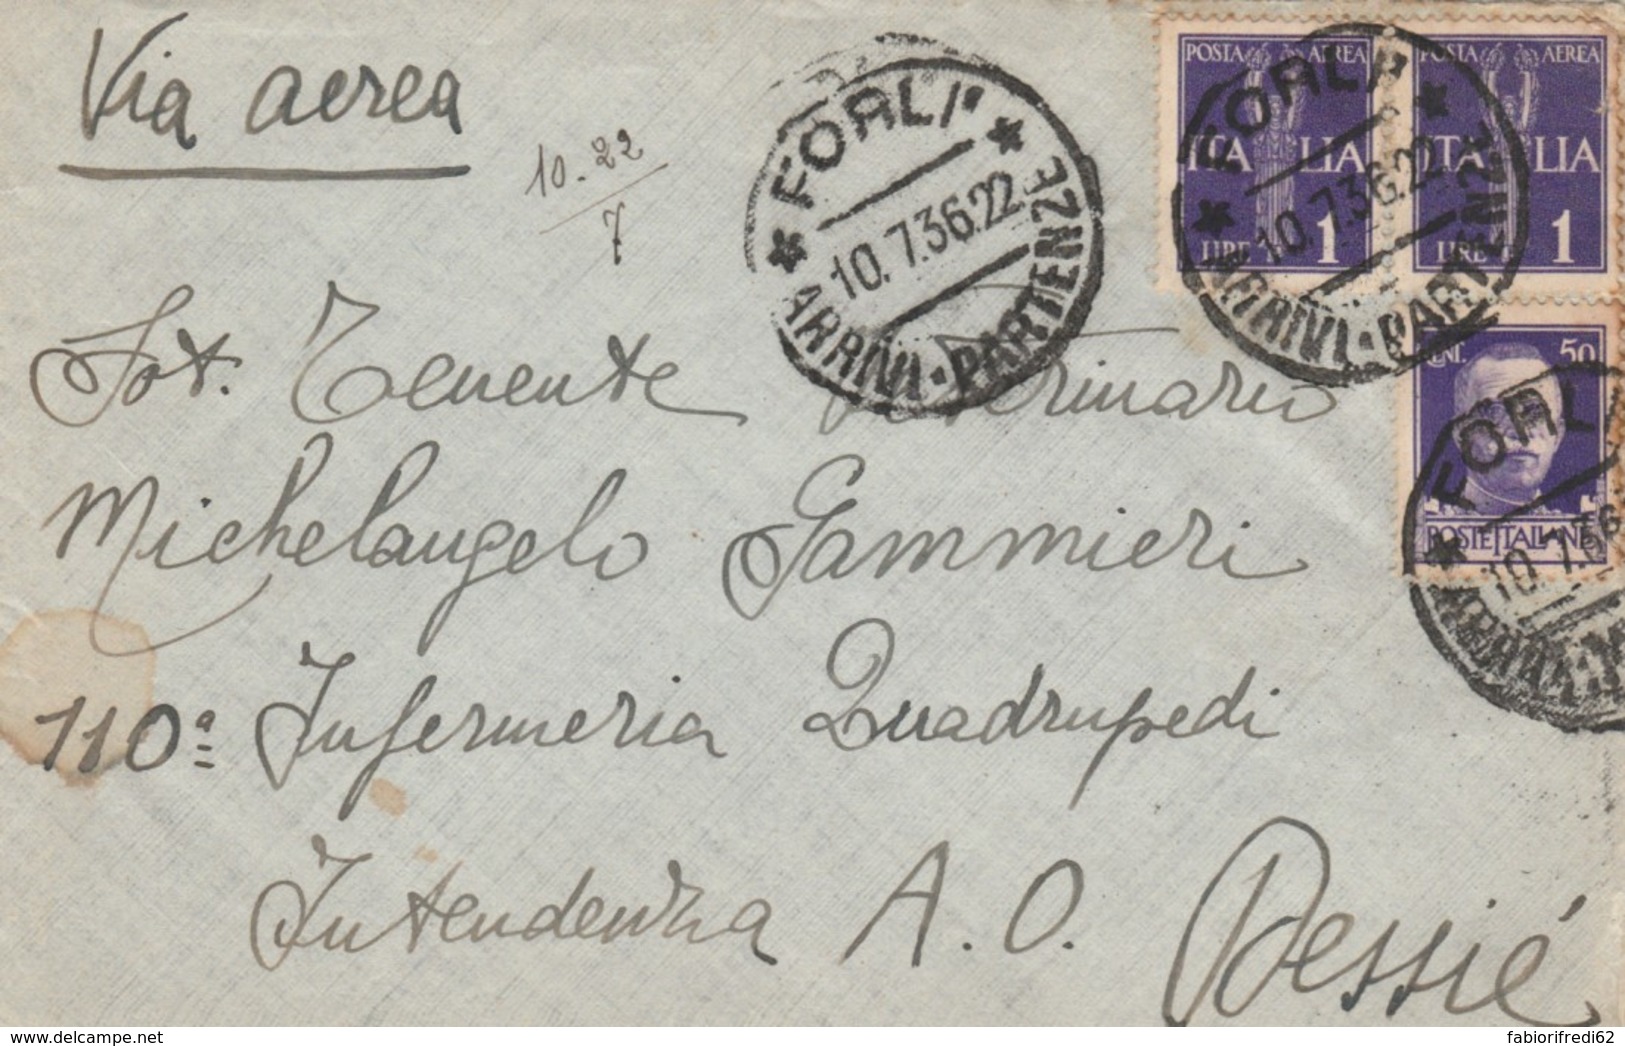 Via aerea
10.22
7
FORLI'
10.7.36.22
ARRIVI·PARTENZE
POSTA AEREA
ITALIA
LIRE 1
POSTA AEREA
ITALIA
LIRE 1
FORLI'
10.7.36.22
ARRIVI·PARTENZE
CENT. 50
POSTE ITALIANE
FORLI
10.7.36
ARRIVI
Sot. Tenente Veterinario
Michelangelo Gammieri
110ª Infermeria Quadrupedi
Intendenza A. O.
Dessié
www.delcampe.net
fabiorifredi62